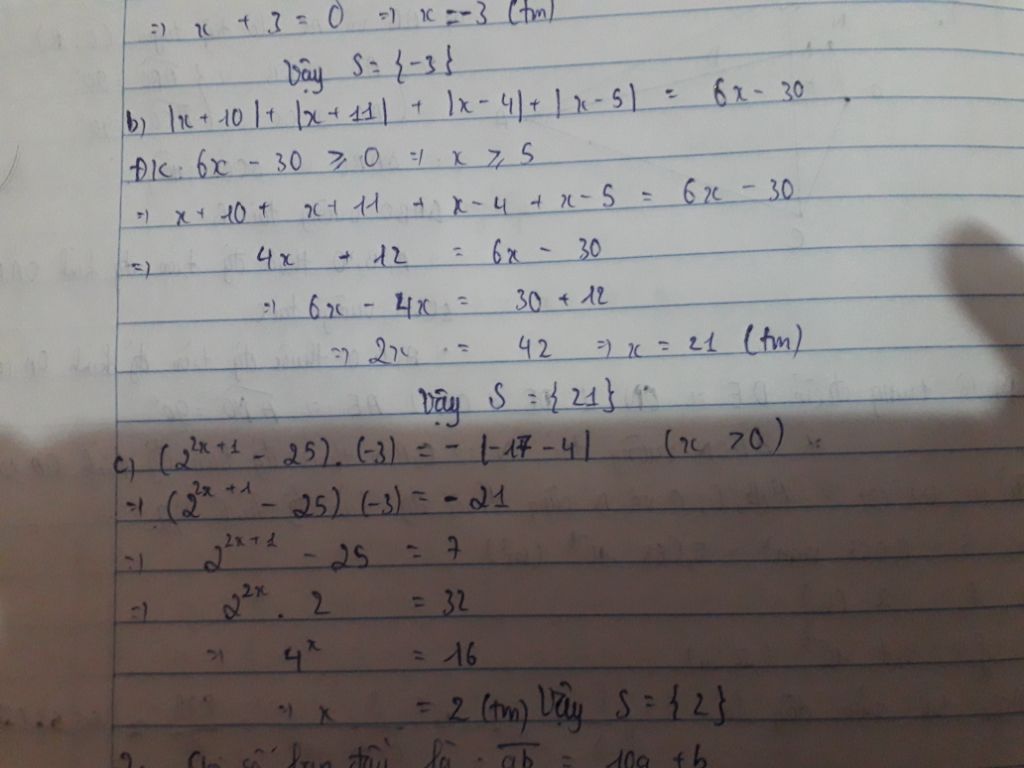 => x + 3 = 0 => x = -3 (tm)
Vậy S = {-3}
b) |x + 10| + |x + 11| + |x - 4| + |x - 5| = 6x - 30.
ĐK: 6x - 30 ⩾ 0 => x ⩾ 5
=> x + 10 + x + 11 + x - 4 + x - 5 = 6x - 30
=> 4x + 12 = 6x - 30
=> 6x - 4x = 30 + 12
=> 2x = 42 => x = 21 (tm)
Vậy S = {21}
c) (2^{2x+1} - 25). (-3) = - |-17 - 4| (x > 0)
=> (2^{2x+1} - 25) (-3) = - 21
=> 2^{2x+1} - 25 = 7
=> 2^{2x} . 2 = 32
=> 4^x = 16
=> x = 2 (tm) Vậy S = {2}
2. số ban đầu là : ab = 10a + b